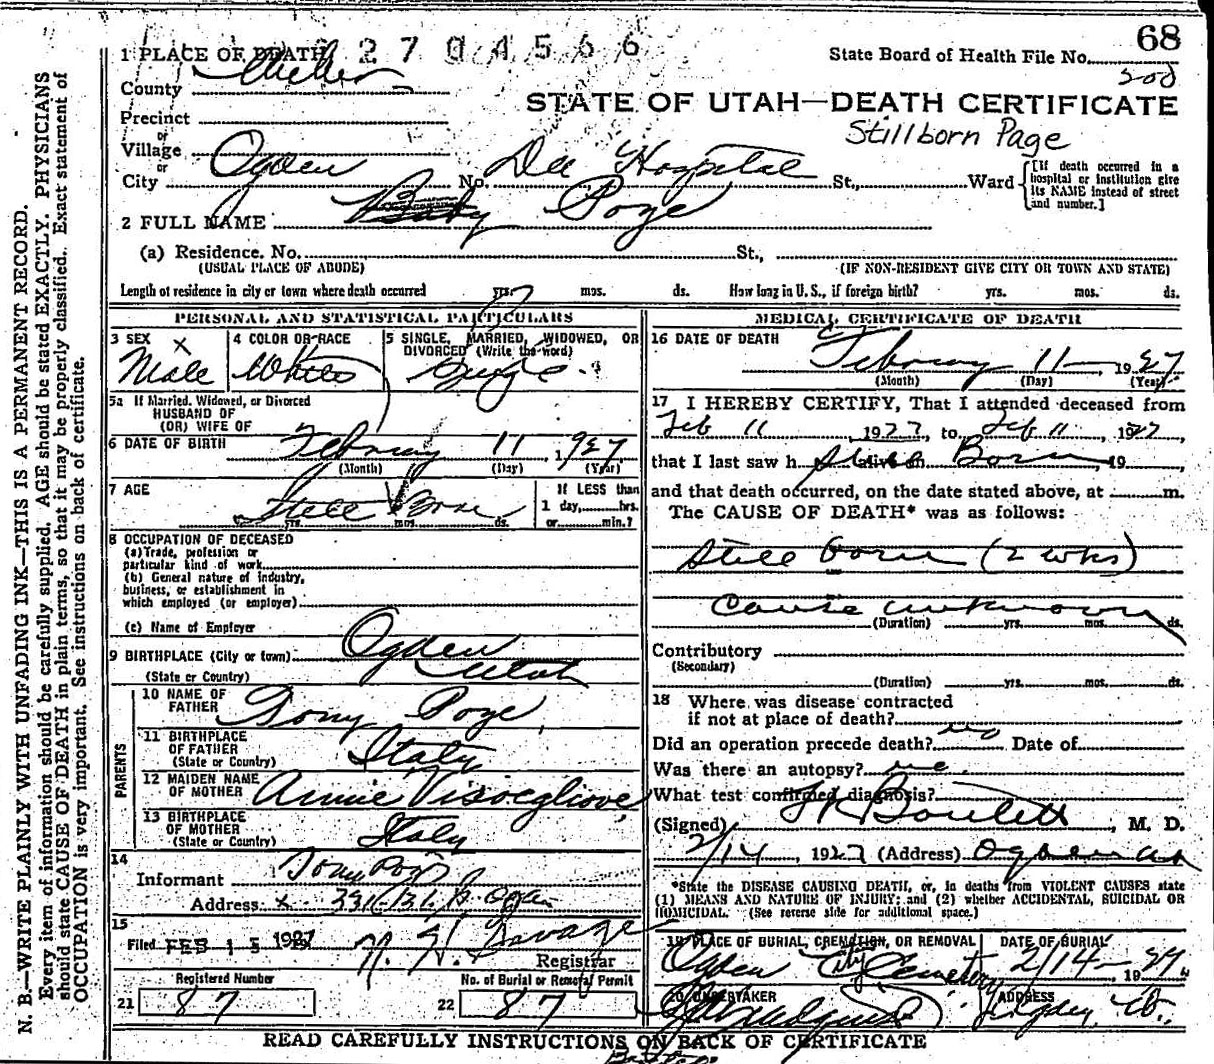 N. B.—WRITE PLAINLY WITH UNFADING INK—THIS IS A PERMANENT RECORD.
Every item of information should be carefully supplied. AGE should be stated EXACTLY. PHYSICIANS
should state CAUSE OF DEATH in plain terms, so that it may be properly classified. Exact statement of
OCCUPATION is very important. See instructions on back of certificate.
68
1 PLACE OF DEATH 2704566
State Board of Health File No.
200
County Weber
STATE OF UTAH—DEATH CERTIFICATE
Precinct
Stillborn Page
or
Village
or
City Ogden No. Dee Hospital St., Ward
[If death occurred in a
hospital or institution give
its NAME instead of street
and number.]
2 FULL NAME Baby Poze
(a) Residence. No. St.,
(USUAL PLACE OF ABODE) (IF NON-RESIDENT GIVE CITY OR TOWN AND STATE)
Length of residence in city or town where death occurred yrs. mos. ds. How long in U. S., if foreign birth? yrs. mos. ds.
PERSONAL AND STATISTICAL PARTICULARS
3 SEX x 4 COLOR OR RACE 5 SINGLE, MARRIED, WIDOWED, OR
DIVORCED (Write the word)
Male White Single
5a If Married, Widowed, or Divorced
HUSBAND OF
(OR) WIFE OF
6 DATE OF BIRTH February 11 1927
(Month) (Day) (Year)
7 AGE Still Born
yrs. mos. ds.
If LESS than
1 day, hrs.
or min.?
8 OCCUPATION OF DECEASED
(a) Trade, profession or
particular kind of work
(b) General nature of industry,
business, or establishment in
which employed (or employer)
(c) Name of Employer
9 BIRTHPLACE (City or town) Ogden
(State or Country) Utah
PARENTS
10 NAME OF
FATHER Tony Poze
11 BIRTHPLACE
OF FATHER
(State or Country) Italy
12 MAIDEN NAME
OF MOTHER Annie
13 BIRTHPLACE
OF MOTHER
(State or Country) Italy
14
Informant Tony Poze
Address x Ogden
15
Filed FEB 15 1927 Savage
Registrar
Registered Number No. of Burial or Removal Permit
21 87 22 87
MEDICAL CERTIFICATE OF DEATH
16 DATE OF DEATH
February 11 1927
(Month) (Day) (Year)
17 I HEREBY CERTIFY, That I attended deceased from
Feb 11, 1927, to Feb 11, 1927,
that I last saw h alive on Still Born, 19
and that death occurred, on the date stated above, at m.
The CAUSE OF DEATH* was as follows:
Still born (2 wks)
Cause unknown
(Duration) yrs. mos. ds.
Contributory
(Secondary)
(Duration) yrs. mos. ds.
18 Where was disease contracted
if not at place of death?
Did an operation precede death? no Date of
Was there an autopsy? no
What test confirmed diagnosis?
(Signed) , M. D.
2/14, 1927 (Address) Ogden Ut
*State the DISEASE CAUSING DEATH, or, in deaths from VIOLENT CAUSES state
(1) MEANS AND NATURE OF INJURY; and (2) whether ACCIDENTAL, SUICIDAL OR
HOMICIDAL. (See reverse side for additional space.)
19 PLACE OF BURIAL, CREMATION, OR REMOVAL DATE OF BURIAL
Ogden City Cemetery 2/14 1927
20 UNDERTAKER ADDRESS
Ogden, Ut.
READ CAREFULLY INSTRUCTIONS ON BACK OF CERTIFICATE